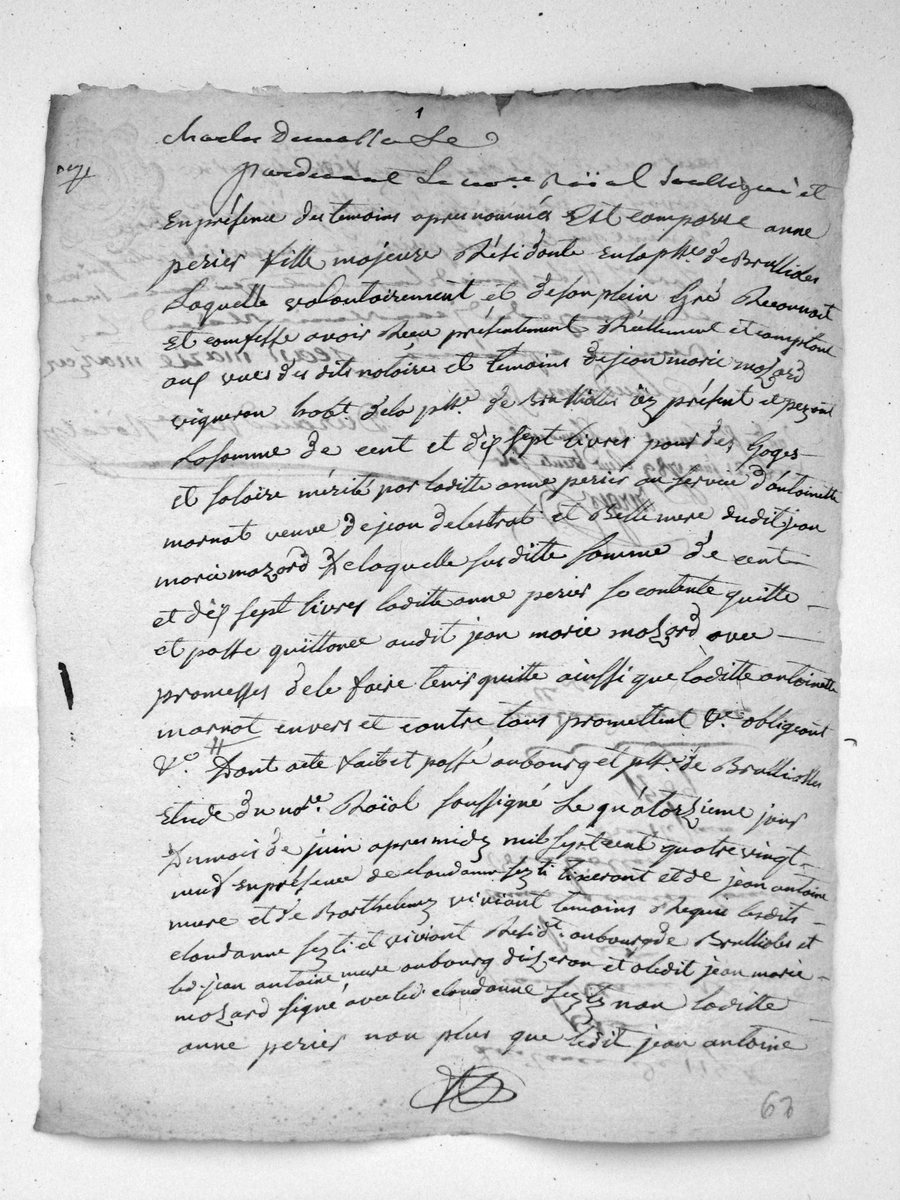 1
pardevant le no.re Roïal soussigné et
en présence des temoins apres nommés Est comparue anne
perier fille majeure Résidante en la ph.e de Brullioles
Laquelle volontairement et de son plein Gré Reconnoit
et comfesse avoir Receu présentement Réelement et comptant
aux vues des dits notaires et temoins de jean marie mozard
vigneron habt de la ph.e de Brullioles icy présent et
La somme de cent et dix sept livres pour des Gages
et salaire mérité par laditte anne perier au service d'antoinette
marnat veuve de jean delestrat et Bellemere dudit jean
marie mozard De laquelle susditte somme de cent
et dix sept livres laditte anne perier se contente quitte
et passe quittance audit jean marie mozard avec
promesses de le faire tenir quitte ainssi que laditte antoinette
marnat envers et contre tous promettent &.c obligeant
&.c Dont acte fait et passé au bourg et ph.e de Brullioles
Etude du no.re Roïal soussigné Le quatorzieme jour
Du mois de juin apres midy mil sept cent quatre vingt
neuf En présence de claudanne tixerant et de jean antoine
mure et de Barthelemy viviant temoins Requis lesdits
claudanne et viviant Resid.t au bourg de Brullioles et
led. jean antoine mure au bourg dizeron et a ledit jean marie
mozard signé avec led. claudanne non laditte
anne perier non plus que ledit jean antoine